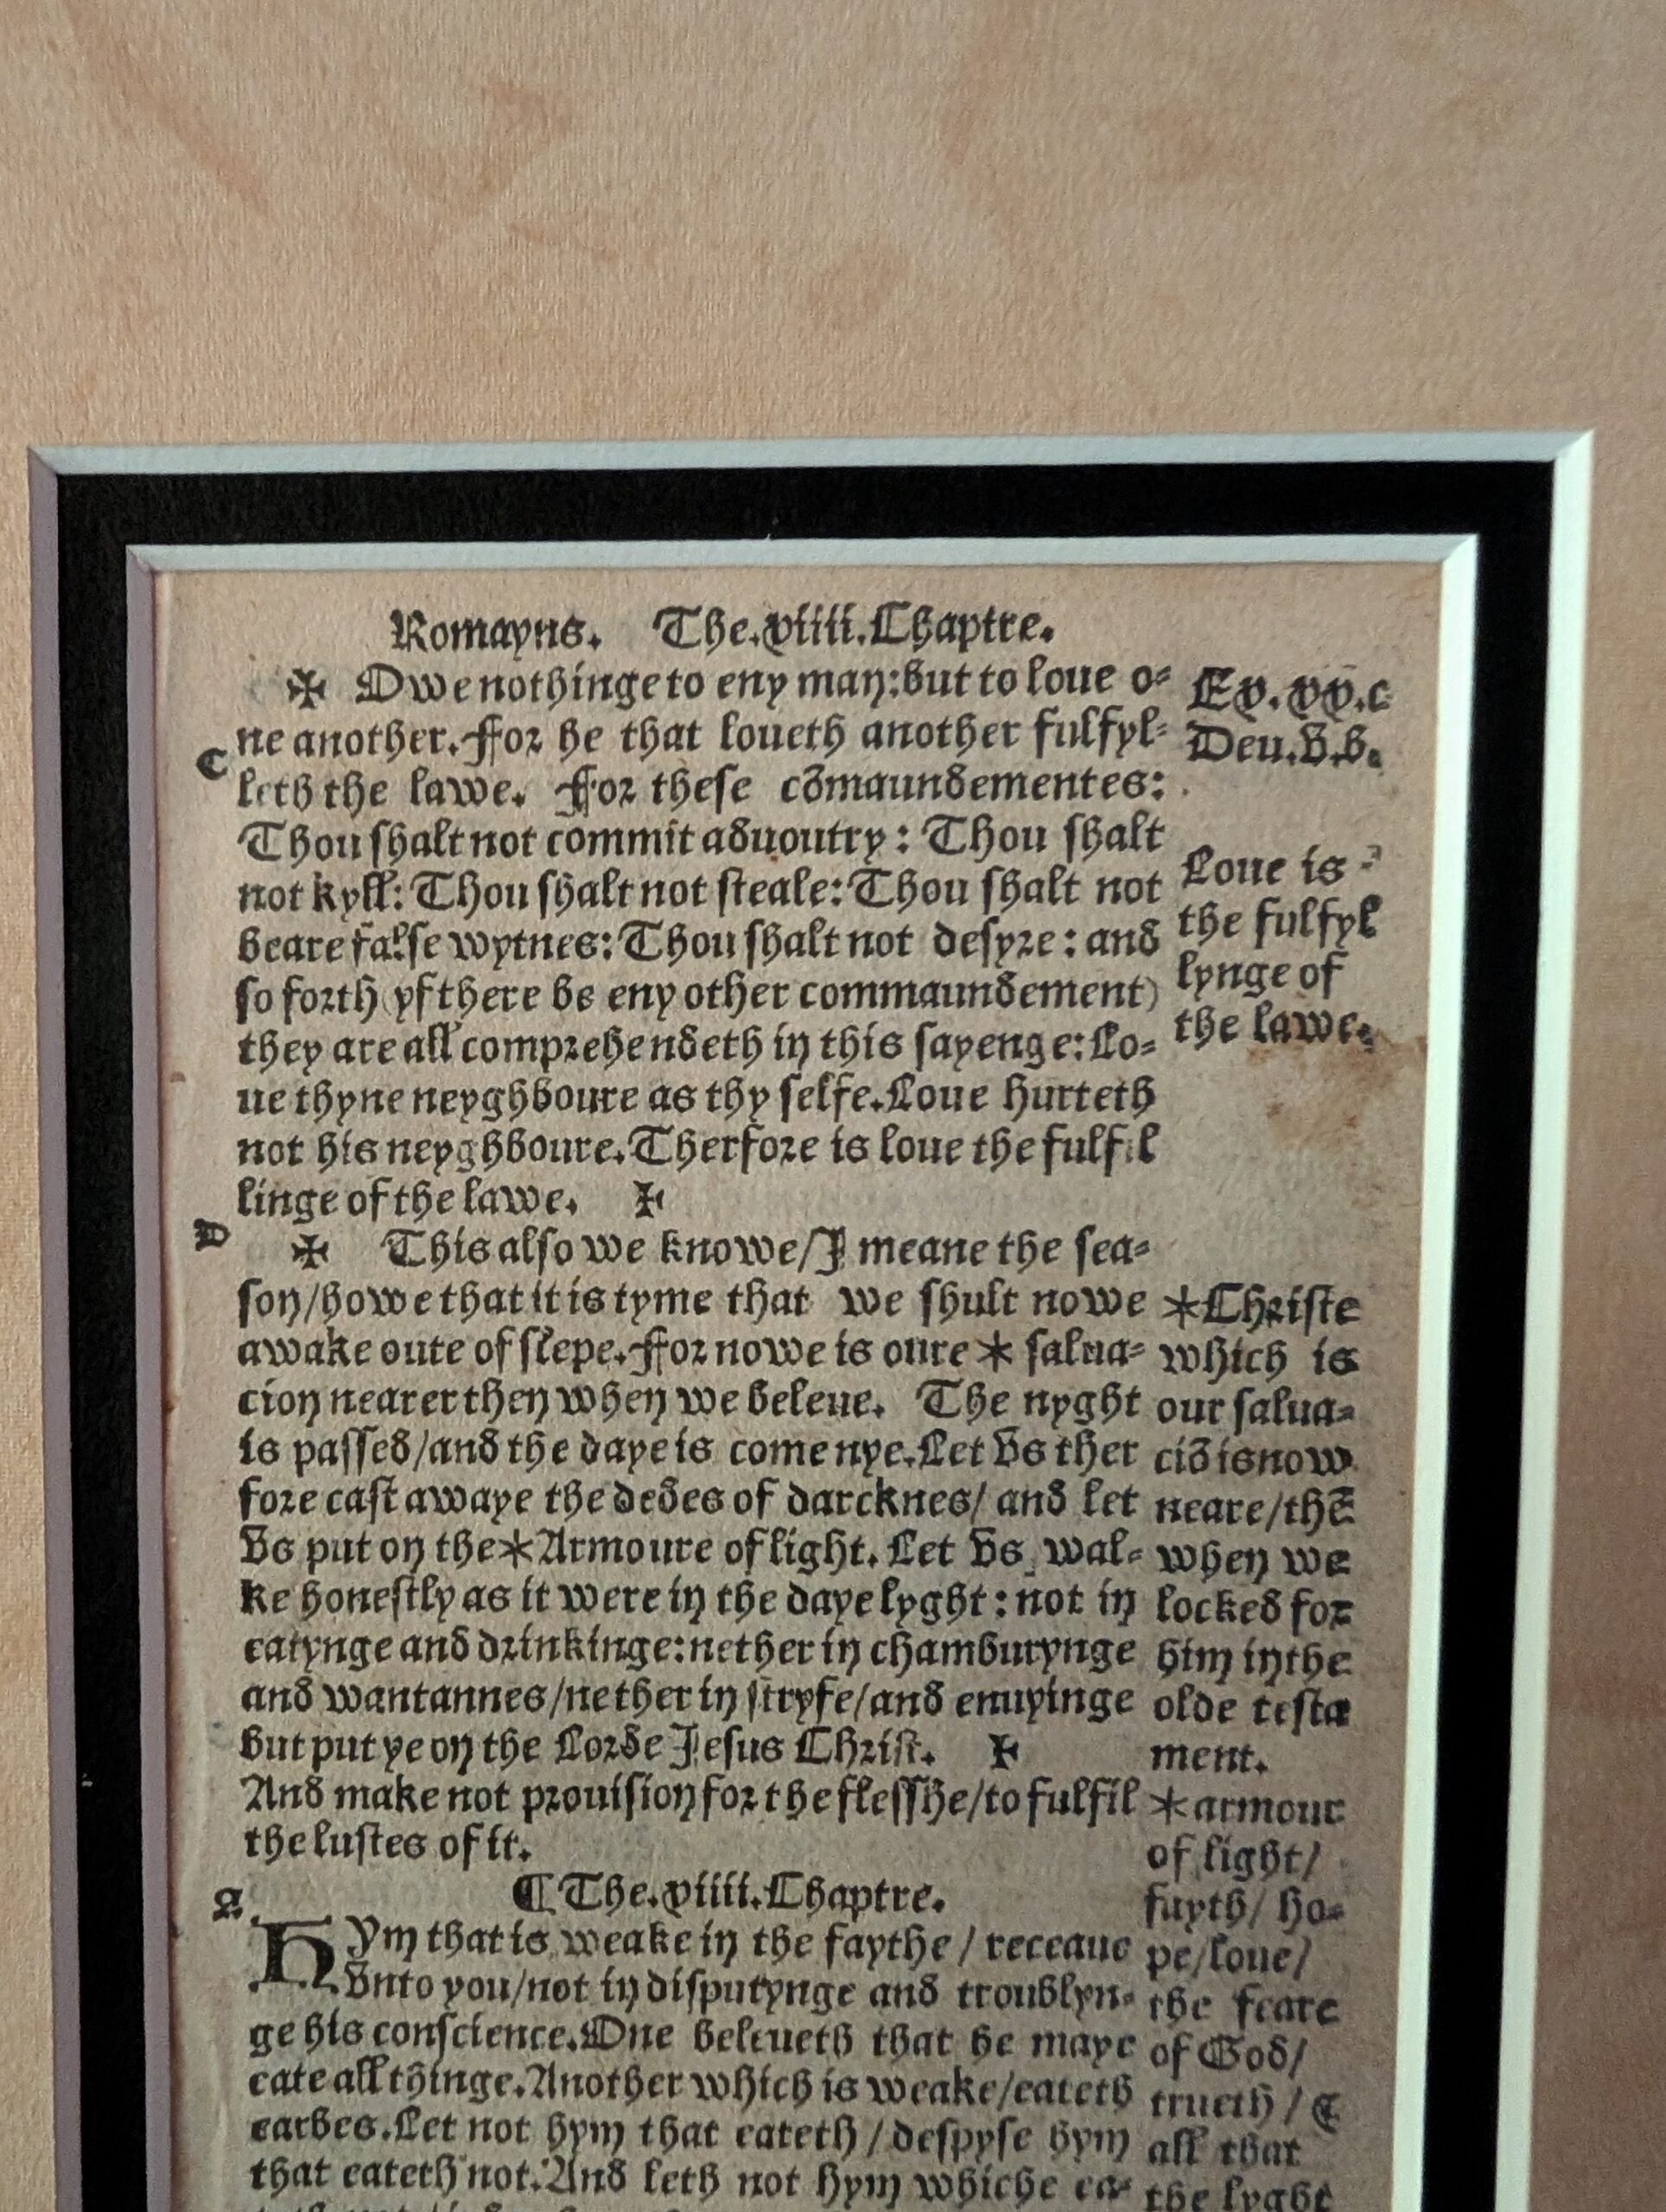 Romayns. The.xiiii.Chaptre.
✠ Owe nothinge to eny man: but to loue o⸗
ne another. For he that loueth another fulfyl⸗
leth the lawe. For these cōmaundementes:
Thou ſhalt not commit aduoutry: Thou ſhalt
not kyll: Thou ſhalt not ſteale: Thou ſhalt not
beare false wytnes: Thou ſhalt not deſyre: and
ſo forth (yf there be eny other commaundement)
they are all comprehendeth in this ſayenge: Lo⸗
ue thyne neyghboure as thy ſelfe. Loue hurteth
not his neyghboure. Therfore is loue the fulfil
linge of the lawe. ✠
✠ This also we knowe/I meane the ſea⸗
ſon/howe that it is tyme that we ſhult nowe
awake oute of ſlepe. For nowe is oure * ſalua⸗
cion nearer then when we beleue. The nyght
is paſſed/and the daye is come nye. Let vs ther
fore caſt awaye the dedes of darcknes/ and let
vs put on the * Armoure of light. Let vs wal⸗
ke honeſtly as it were in the daye lyght: not in
eatynge and drinkinge: nether in chamburynge
and wantannes/nether in ſtryfe/and enuyinge
but put ye on the Lorde Jeſus Chriſt. ✠
And make not prouiſion for the fleſſhe/to fulfil
the luſtes of it.
¶ The.xiiii.Chaptre.
Hym that is weake in the faythe / receaue
vnto you/not in diſputynge and troublyn⸗
ge his conſcience. One beleueth that he maye
eate all thinge. Another which is weake/eateth
earbes. Let not hym that eateth / deſpyſe hym
that eateth not. And leth not hym whiche ea⸗
C
D
A
Ex. xx.c
Deu.v.b.
Loue is
the fulfyl
lynge of
the lawe.
*Chriſte
which is
our ſalua⸗
ciō is now
neare/thē
when we
locked for
him in the
olde teſta
ment.
*armour
of light/
fayth/ ho⸗
pe/loue/
the feare
of God/
trueth / &
all that
the lyght